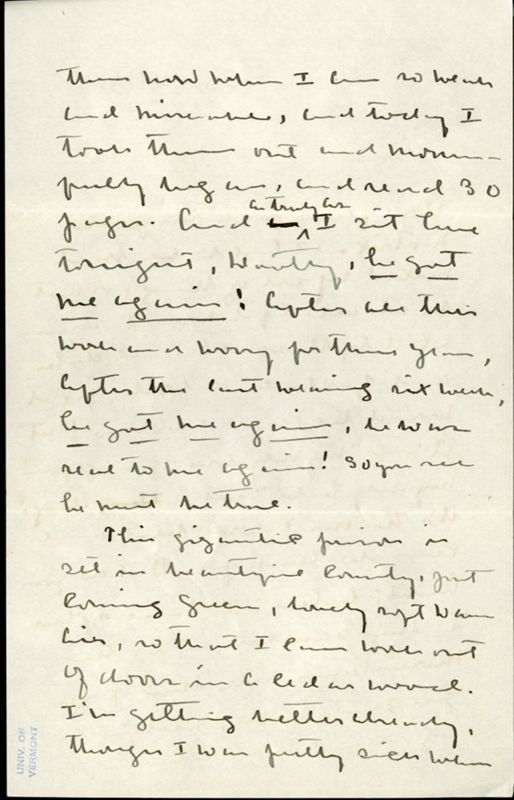 them now when I am so weak
and miserable, and today I
took them out and mourn-
fully began, and read 30
pages. And actually as I sit here
tonight, Wootty, he got
me again! After all this
work and worry for three years,
after the last wearing six weeks,
he got me again, he was
real to me again! So you see
he must be true.
This gigantic prison is
set in beautiful country, just
coming green, lovely soft warm
air, so that I can work out
of doors in a cedar wood.
I'm getting better already,
though I was pretty sick when
UNIV. OF
VERMONT